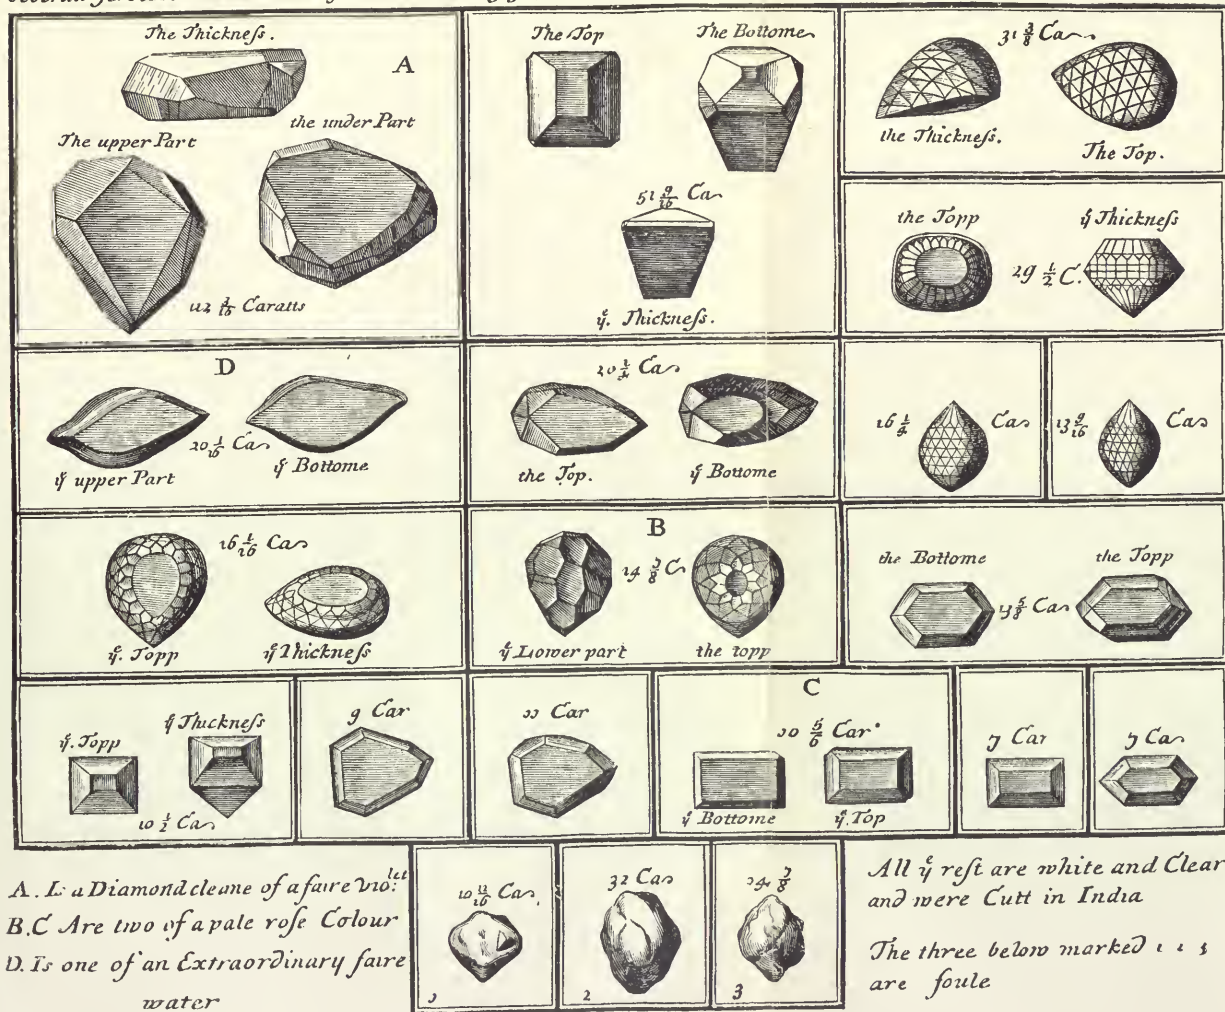 The Thickneſs.
A
The upper Part
the under Part
112 3/16 Caratts
The Top
The Bottome
51 9/16 Ca
ẙ. Thickneſs.
31 3/8 Ca
the Thickneſs.
The Top.
the Topp
ẙ Thickneſs
29 1/2 C.
D
20 1/16 Ca
ẙ upper Part
ẙ Bottome
20 1/4 Ca
the Top.
ẙ Bottome
16 1/4 Ca
13 9/16 Ca
16 1/16 Ca
ẙ. Topp
ẙ Thickneſs
B
14 3/8 C
ẙ Lower part
the topp
the Bottome
the Topp
13 5/8 Ca
ẙ. Topp
ẙ Thickneſs
10 1/2 Ca
9 Car
11 Car
C
10 5/6 Car
ẙ Bottome
ẙ. Top
7 Car
7 Ca
A. Is a Diamond cleane of a faire vio:let
B.C Are two of a pale roſe Colour
D. Is one of an Extraordinary faire
water
10 11/16 Ca
1
32 Ca
2
34 7/8
3
All ẙ reſt are white and Clear
and were Cutt in India
The three below marked 1 2 3
are foule